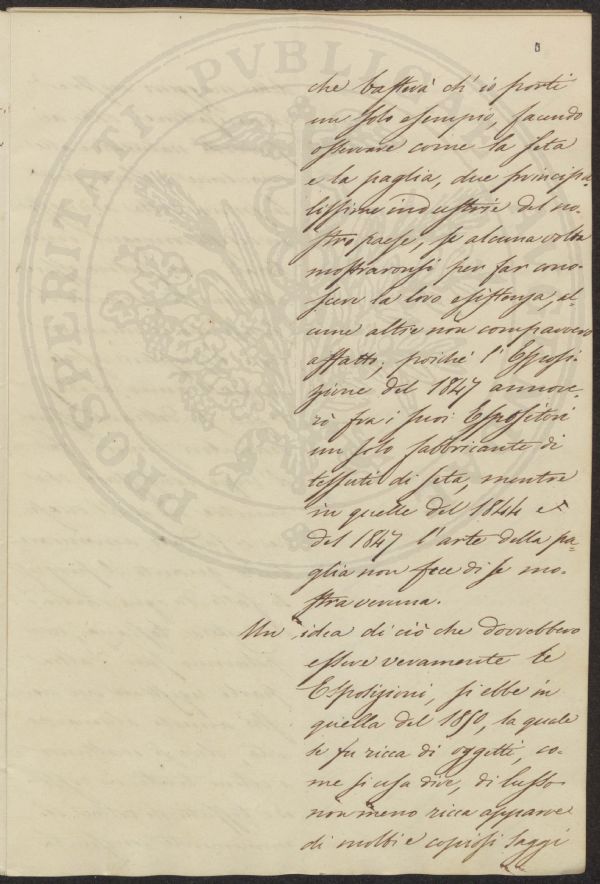 PROSPERITATI PVBLICAE
che basterà ch'io porti
un solo esempio, facendo
osservare come la seta
e la paglia, due principa=
lissime industrie del no-
stro paese, se alcuna volta
mostraronsi per far cono-
scere la loro esistenza, al-
cune altre non comparvero
affatto; poichè l'Esposi-
zione del 1847 annove-
rò fra i suoi Espositori
un solo fabbricante di
tessuti di seta, mentre
in quelle del 1844 e
del 1847 l'arte della pa=
glia non fece di se mo-
stra veruna.
Un'idea di ciò che dovrebbero
essere veramente le
Esposizioni, si ebbe in
quella del 1850, la quale
se fu ricca di oggetti, co-
me si usa dire, di lusso
non meno ricca apparve
di molti e copiosi saggi